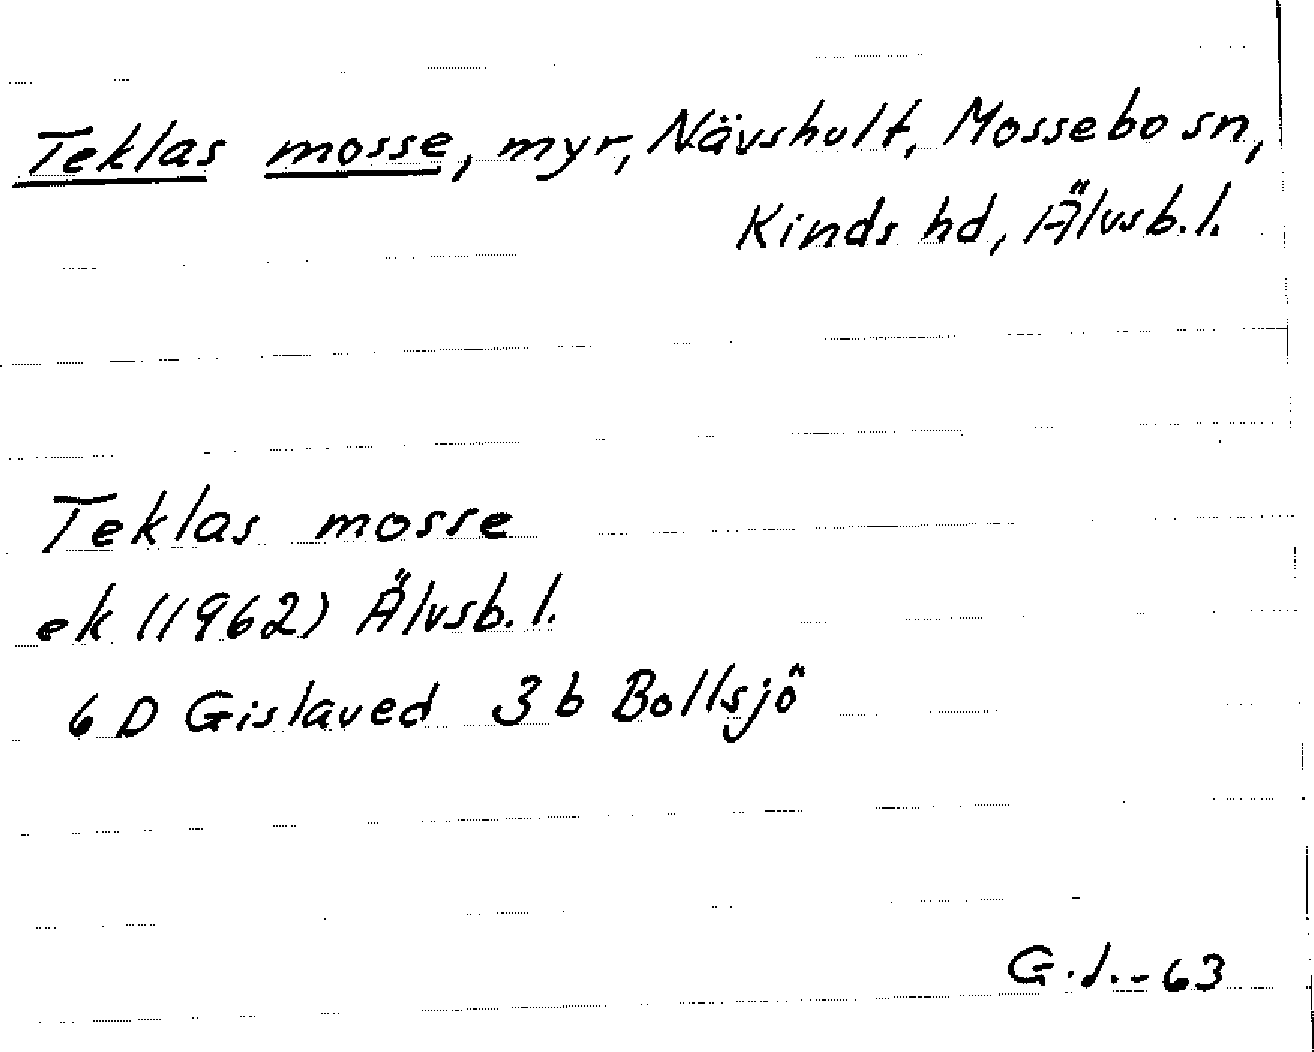 Teklas mosse, myr, Nävshult, Mossebo sn,
Kinds hd, Älvsb. l.
Teklas mosse
ek (1962) Älvsb. l.
6 D Gislaved 3 b Bollsjö
G.J.-63